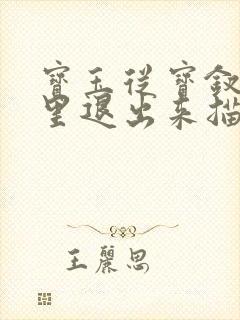 寶玉從寶釵
里退出來描
王麗思